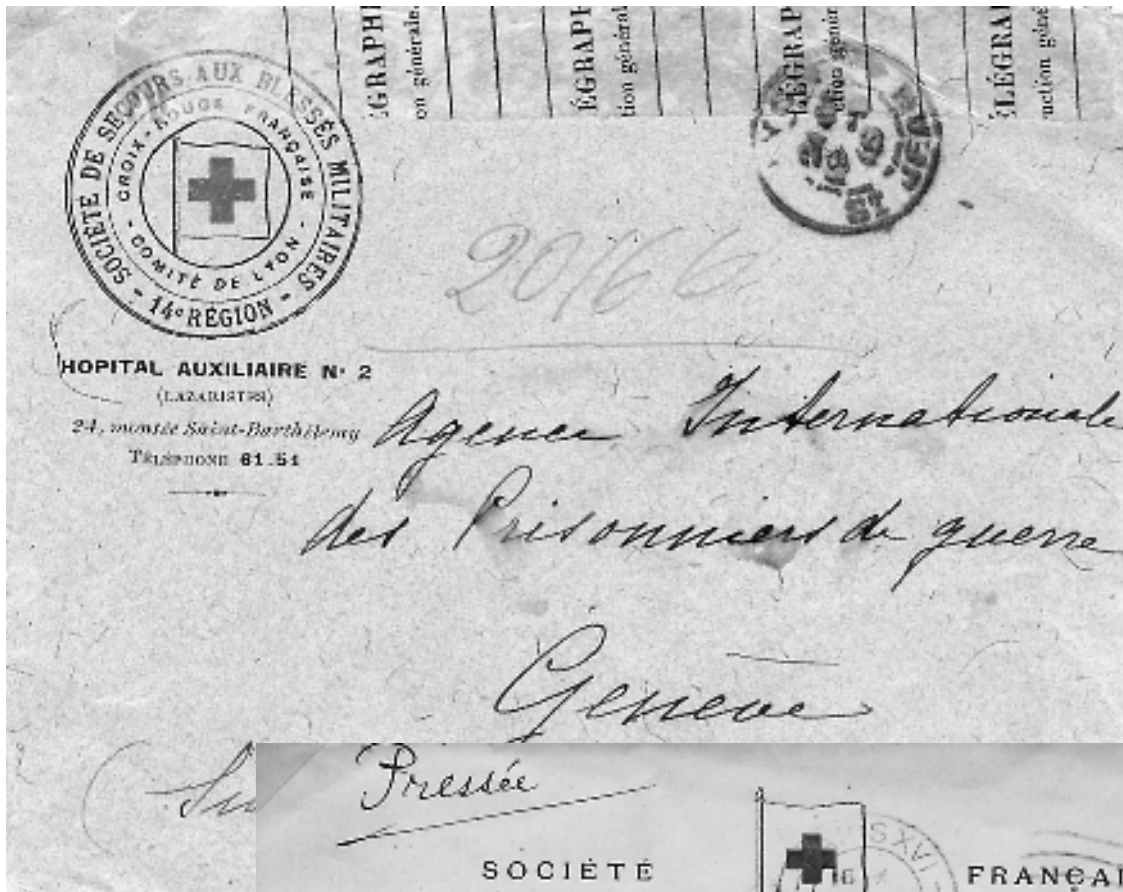 ÉGRAPHI ÉGRAPH LÉGRAPH ÉLÉGRAP
on générale. tion général ction génér uction géné
SOCIÉTÉ DE SECOURS AUX BLESSÉS MILITAIRES
CROIX-ROUGE FRANÇAISE
- COMITÉ DE LYON -
- 14e RÉGION -
20166
HOPITAL AUXILIAIRE N° 2
(LAZARISTES)
24, montée Saint-Barthélemy
TÉLÉPHONE 61.51
Agence Internationale
des Prisonniers de guerre
Genève
Su
Pressée
SOCIÉTÉ FRANÇAI